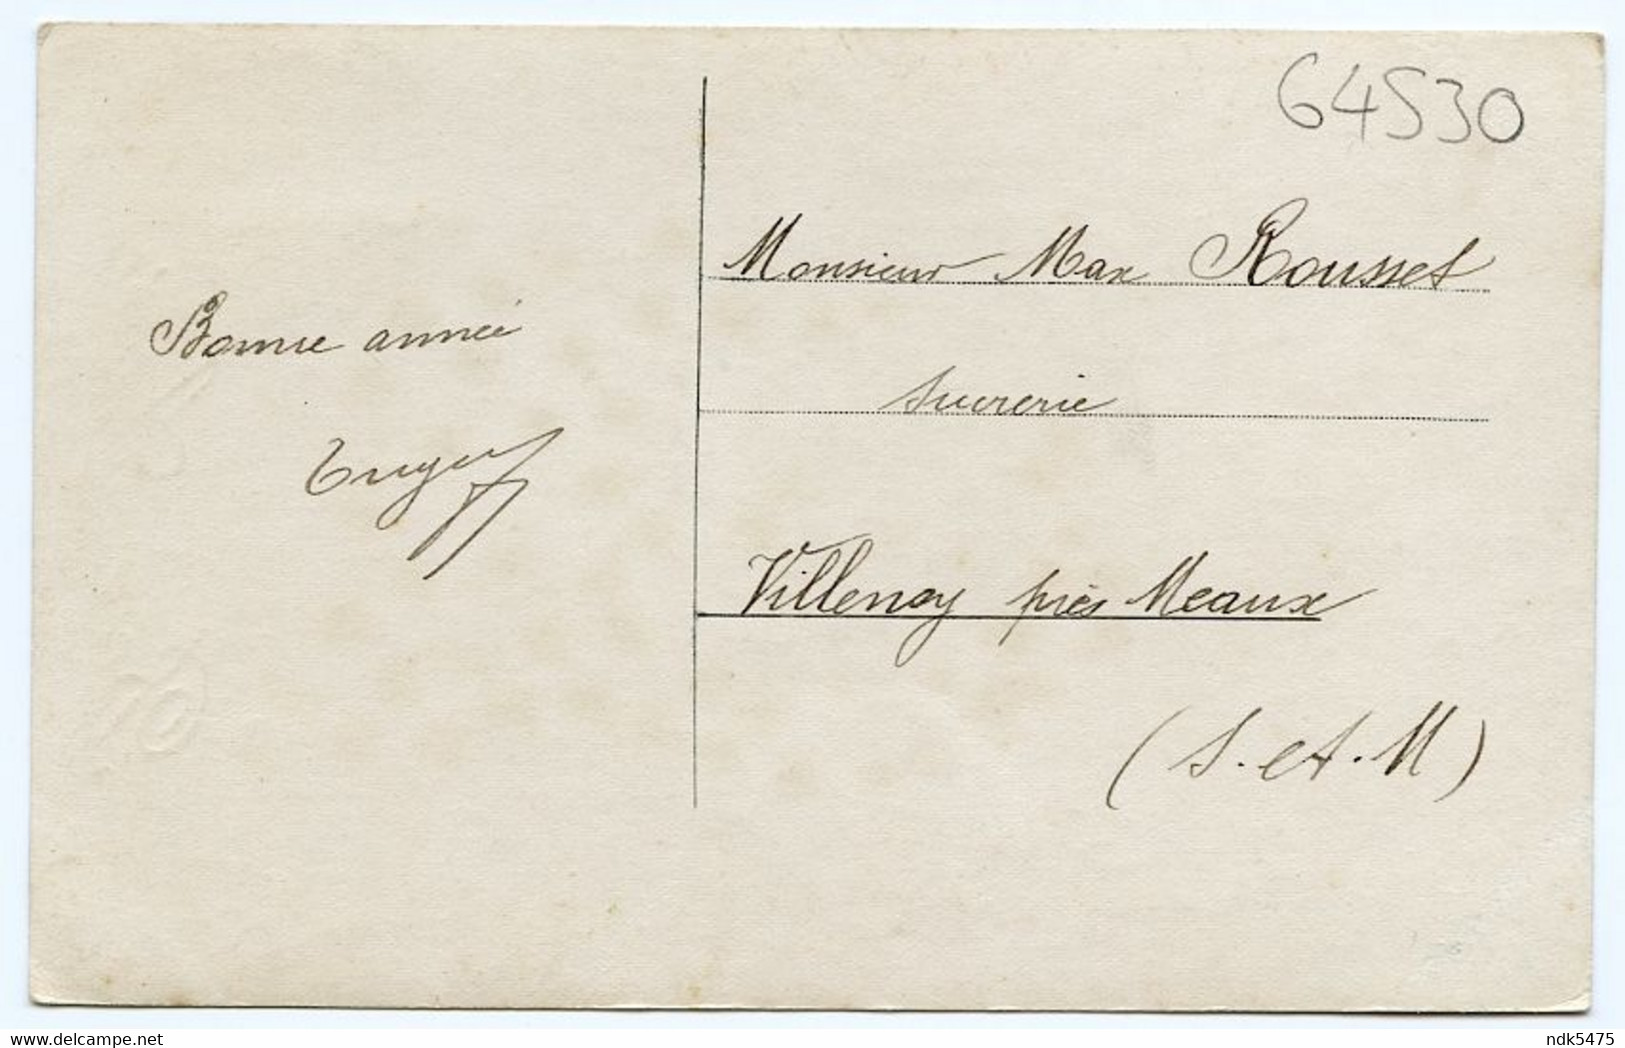 64530
Bonne année
Monsieur Max Rousset
Sucrerie
Villenoy près Meaux
(S. et. M)
delcampe.net
ndk5475